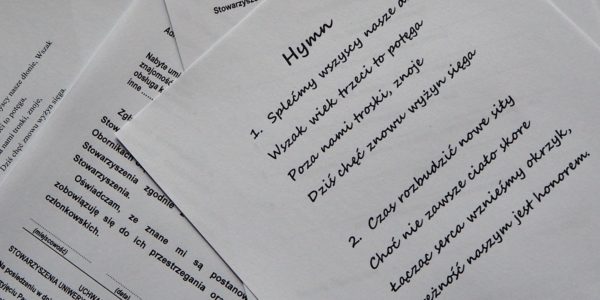 Hymn
1. Splećmy wszyscy nasze
Wszak wiek trzeci to potęga
Poza nami troski, znoje
Dziś chęć znowu wyżyn sięga
2. Czas rozbudzić nowe siły
Choć nie zawsze ciało skore
Łącząc serca wznieśmy okrzyk,
nasze dłonie, Wszak
to potęga,
nami troski, znoje,
Dziś chęć znowu wyżyn sięga.
Stowarzyszen
Nabyte umi
znajomość
obsługa k
inne
Stowarzyszenia
Obornikach
Stowarzyszenia zgodnie
Stowarzyszenia.
Oświadczam, że znane mi są postano
zobowiązuję się do ich przestrzegania ora
członkowskich.
(miejscowość)
(data)
UCHWA
STOWARZYSZENIA UNIWER
Na posiedzeniu w d